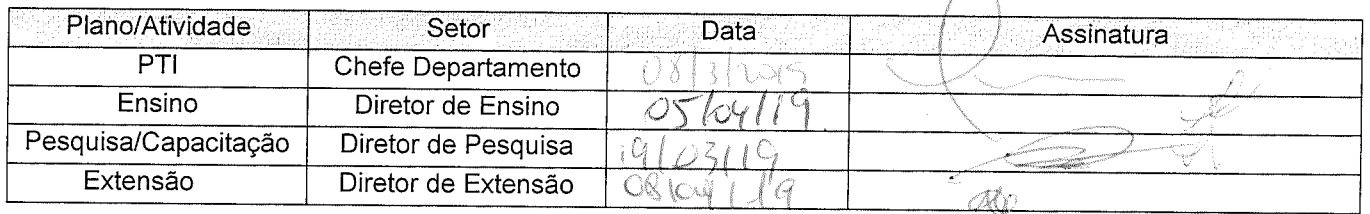 Plano/Atividade Setor Data Assinatura
PTI Chefe Departamento 08/3/2019
Ensino Diretor de Ensino 05/04/19
Pesquisa/Capacitação Diretor de Pesquisa 19/03/19
Extensão Diretor de Extensão 08/04/19